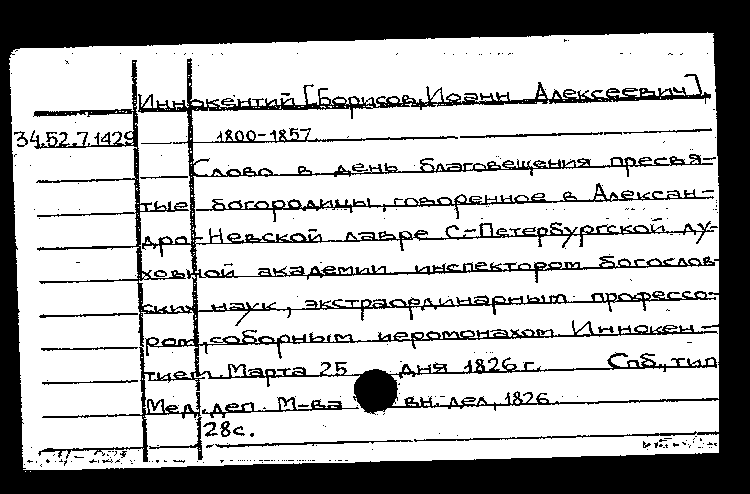 Иннокентий [Борисов, Иоанн Алексеевич],
34.52.7.1429 1800-1857
Слово в день благовещения пресвя-
тые богородицы, говоренное в Алексан-
дро-Невской лавре С-Петербургской ду-
ховной академии инспектором богослов
ских наук, экстраординарным профессо-
ром, соборным иеромонахом Иннокен-
тием Марта 25 дня 1826 г. Спб., тип
Мед. деп. М-ва вн. дел, 1826.
28с.